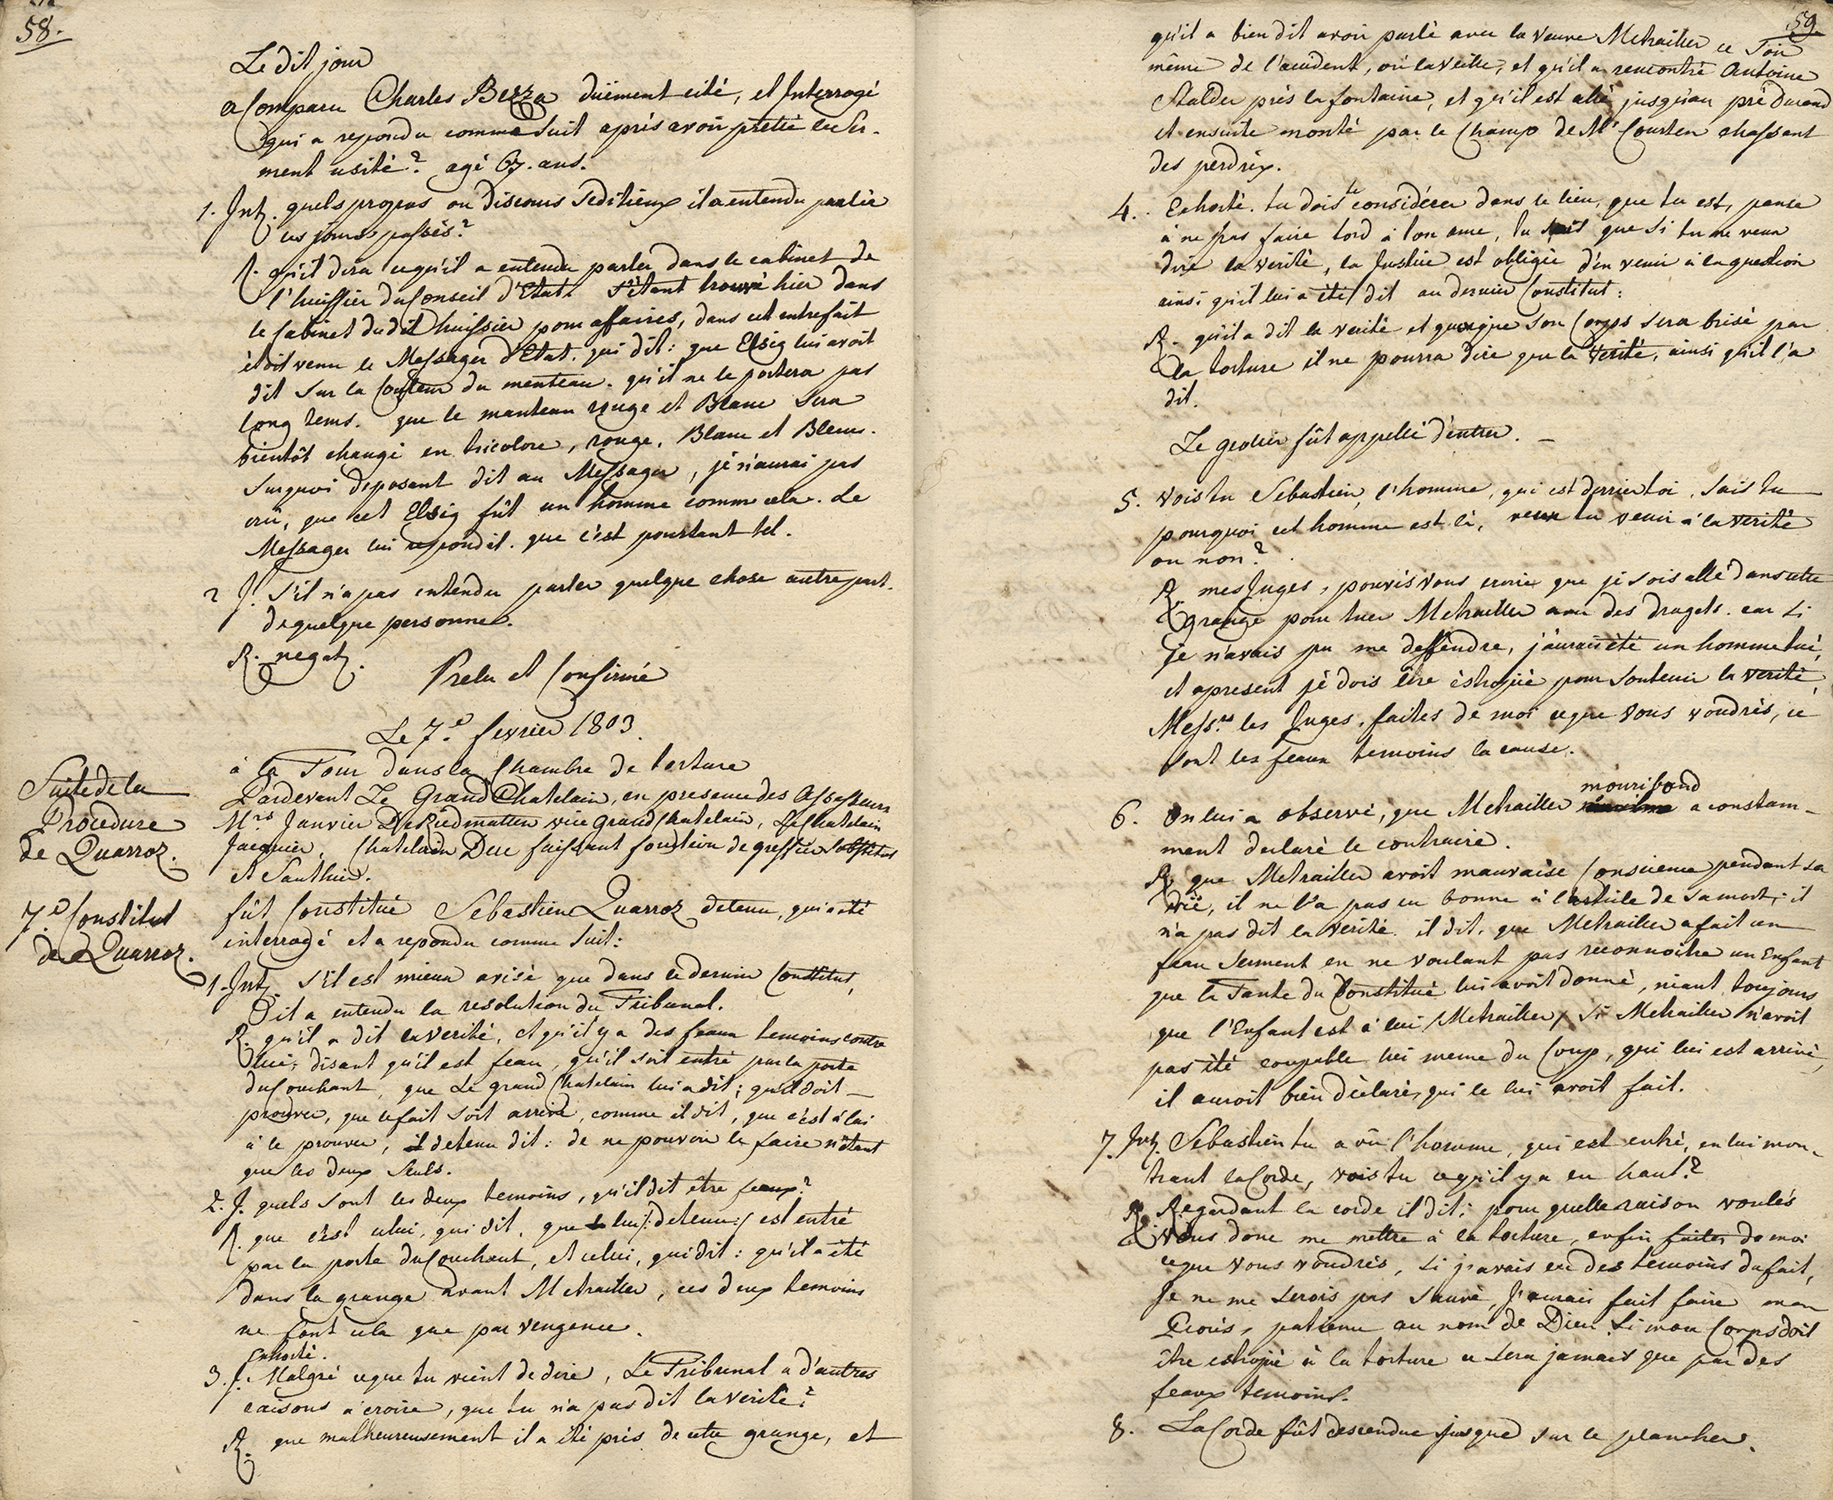 58.
Le dit jour
a Comparu Charles Bezza duëment cité, et Interrogé
qui a repondu comme suit aprés avoir pretté le Ser-
ment usité? agé 67. ans.
1. Int. quels propos ou discours seditieux il a entendu parler
ces jours passés?
R. qu'il dira ce qu'il a entendu parler dans le cabinet de
l'huissier du Conseil d'Etat. s'étant trouvé hier dans
le Cabinet du dit huissier pour affaires, dans cet entrefait
étoit venu le Messager d'Etat. qui dit: que Elsig lui avoit
dit sur la Couleur du menteau. qu'il ne le portera pas
long tems. que le manteau rouge et Blanc sera
bientôt changé en tricolore, rouge, Blanc et Bleus.
surquoi deposant dit au Messager, jé n'aurai pas
crû, que cet Elsig fût un homme comme cela. Le
Messager lui repondit. que c'est pourtant tel.
2 J. s'il n'a pas entendu parler quelque chose autre part.
de quelque personne.
R. negat.
Prelu et Confirmé
Le 7.e fevrier 1803.
Suite de la
Procedure
de Quarroz.
à la Tour dans la Chambre de torture
Pardevant Le Grand Chatelain, en presence des Assesseurs
Mrs Janvier DeRiedmatten vice grand Chatelain, Le Chatelain
Jacquier, Chatelain Duc faissant fonction de greffier Substitus
et Sauthier.
7.e Constitut
de Quarroz.
fût Constitué Sebastien Quarroz detenu, qui a été
interrogé et a repondu comme suit:
1. Int. s'il est mieux avisé que dans ce dernier Constitut,
s'il a entendu la resolution du Tribunal.
R. qu'il a dit la verité, et qu'il y a des feaux temoins contre
lui, disant qu'il est feau, qu'il soit entré par la porte
du Couchant, que Le grand Chatelain lui a dit; qu'il doit
prouver, que le fait soit arrivé, comme il dit, que c'est à lui
à le prouver, il detenu dit: de ne pouvoir le faire n'étant
que les deux seuls.
2. J. quels sont les deux temoins, qu'il dit être feaux?
R. que c'est celui, qui dit, que lui /: detenu :/ est entré
par la porte du Couchant, et celui, qui dit: qu'il a été
dans la grange avant Metrailler, ces deux temoins
ne font cela que par vengence.
Exhorté.
3. J. Malgré ce que tu vient de dire, Le Tribunal a d'autres
raisons à croire, que tu n'a pas dit la verité?
R. que malheureusement il a été prés de cette grange, et
59
qu'il a bien dit avoir parlé avec la veuve Metrailler ce soir
même de l'accident, ou la veille, et qu'il a rencontré Antoine
Stalder prés la fontaine, et qu'il est allé jusqu'au pré Durand
et ensuite monté par le Champ de Mr Courten chassant
des perdrix.
4. Exhorté. tu dois te considérer dans le lieu, que tu est, pense
à ne pas faire tord à ton ame, tu sais que si tu ne veux
dire la verité, la Justice est obligée d'en venir à la question
ainsi qu'il lui a été dit au dernier Constitut:
R. qu'il a dit la verité et quoique son Corps sera brisé par
la torture il ne pourra dire que la verité, ainsi qu'il l'a
dit.
Le geolier fût appellé d'entrer.
5. vois tu Sebastien, l'homme, qui est derrier toi, sais tu
pourquoi cet homme est là, veux tu venir à la verité
ou non?
R. mes Juges, pouvés vous croire que jé sois allé dans cette
grange pour tuer Metrailler avec des dragels. car si
je n'avais pu me deffendre, j'aurais été un homme tué,
et apresent jé dois être éstropié pour soutenir la verité,
Messrs les Juges, faites de moi ce que vous voudrés, ce
sont les feaux temoins la cause.
mouribond
6. On lui a observé, que Metrailler a constam-
ment declaré le contraire.
R. que Metrailler avoit mauvaise Consience pendant sa
vie, il ne l'a pas eu bonne à l'article de sa mort, il
n'a pas dit la verité. il dit, que Metrailler a fait un
feau Serment en ne voulant pas reconnoitre un Enfant
que la Tante du Constitué lui avoit donné, niant toujours
que l'Enfant est à lui /Metrailler/ Si Metrailler n'avoit
pas été coupable lui meme du Coup, qui lui est arrivé,
il auroit bien déclaré, qui le lui avoit fait.
7. Int. Sebastien tu a vû l'homme, qui est entré, en lui mon-
trant la Corde, vois tu ce qu'il y a en haut?
R. Regardant la corde il dit; pour quelle raison voulés
vous donc me mettre à la torture, enfin faites de moi
ce que vous voudrés, si j'avais eu des temoins du fait,
Je ne me serois pas sauvé, J'aurais fait faire mon
Procés, patience au nom de Dieu. Si mon Corps doit
être estropié à la torture ce sera jamais que par des
feaux temoins.
8. La Corde fût descendue jusque sur le plancher.